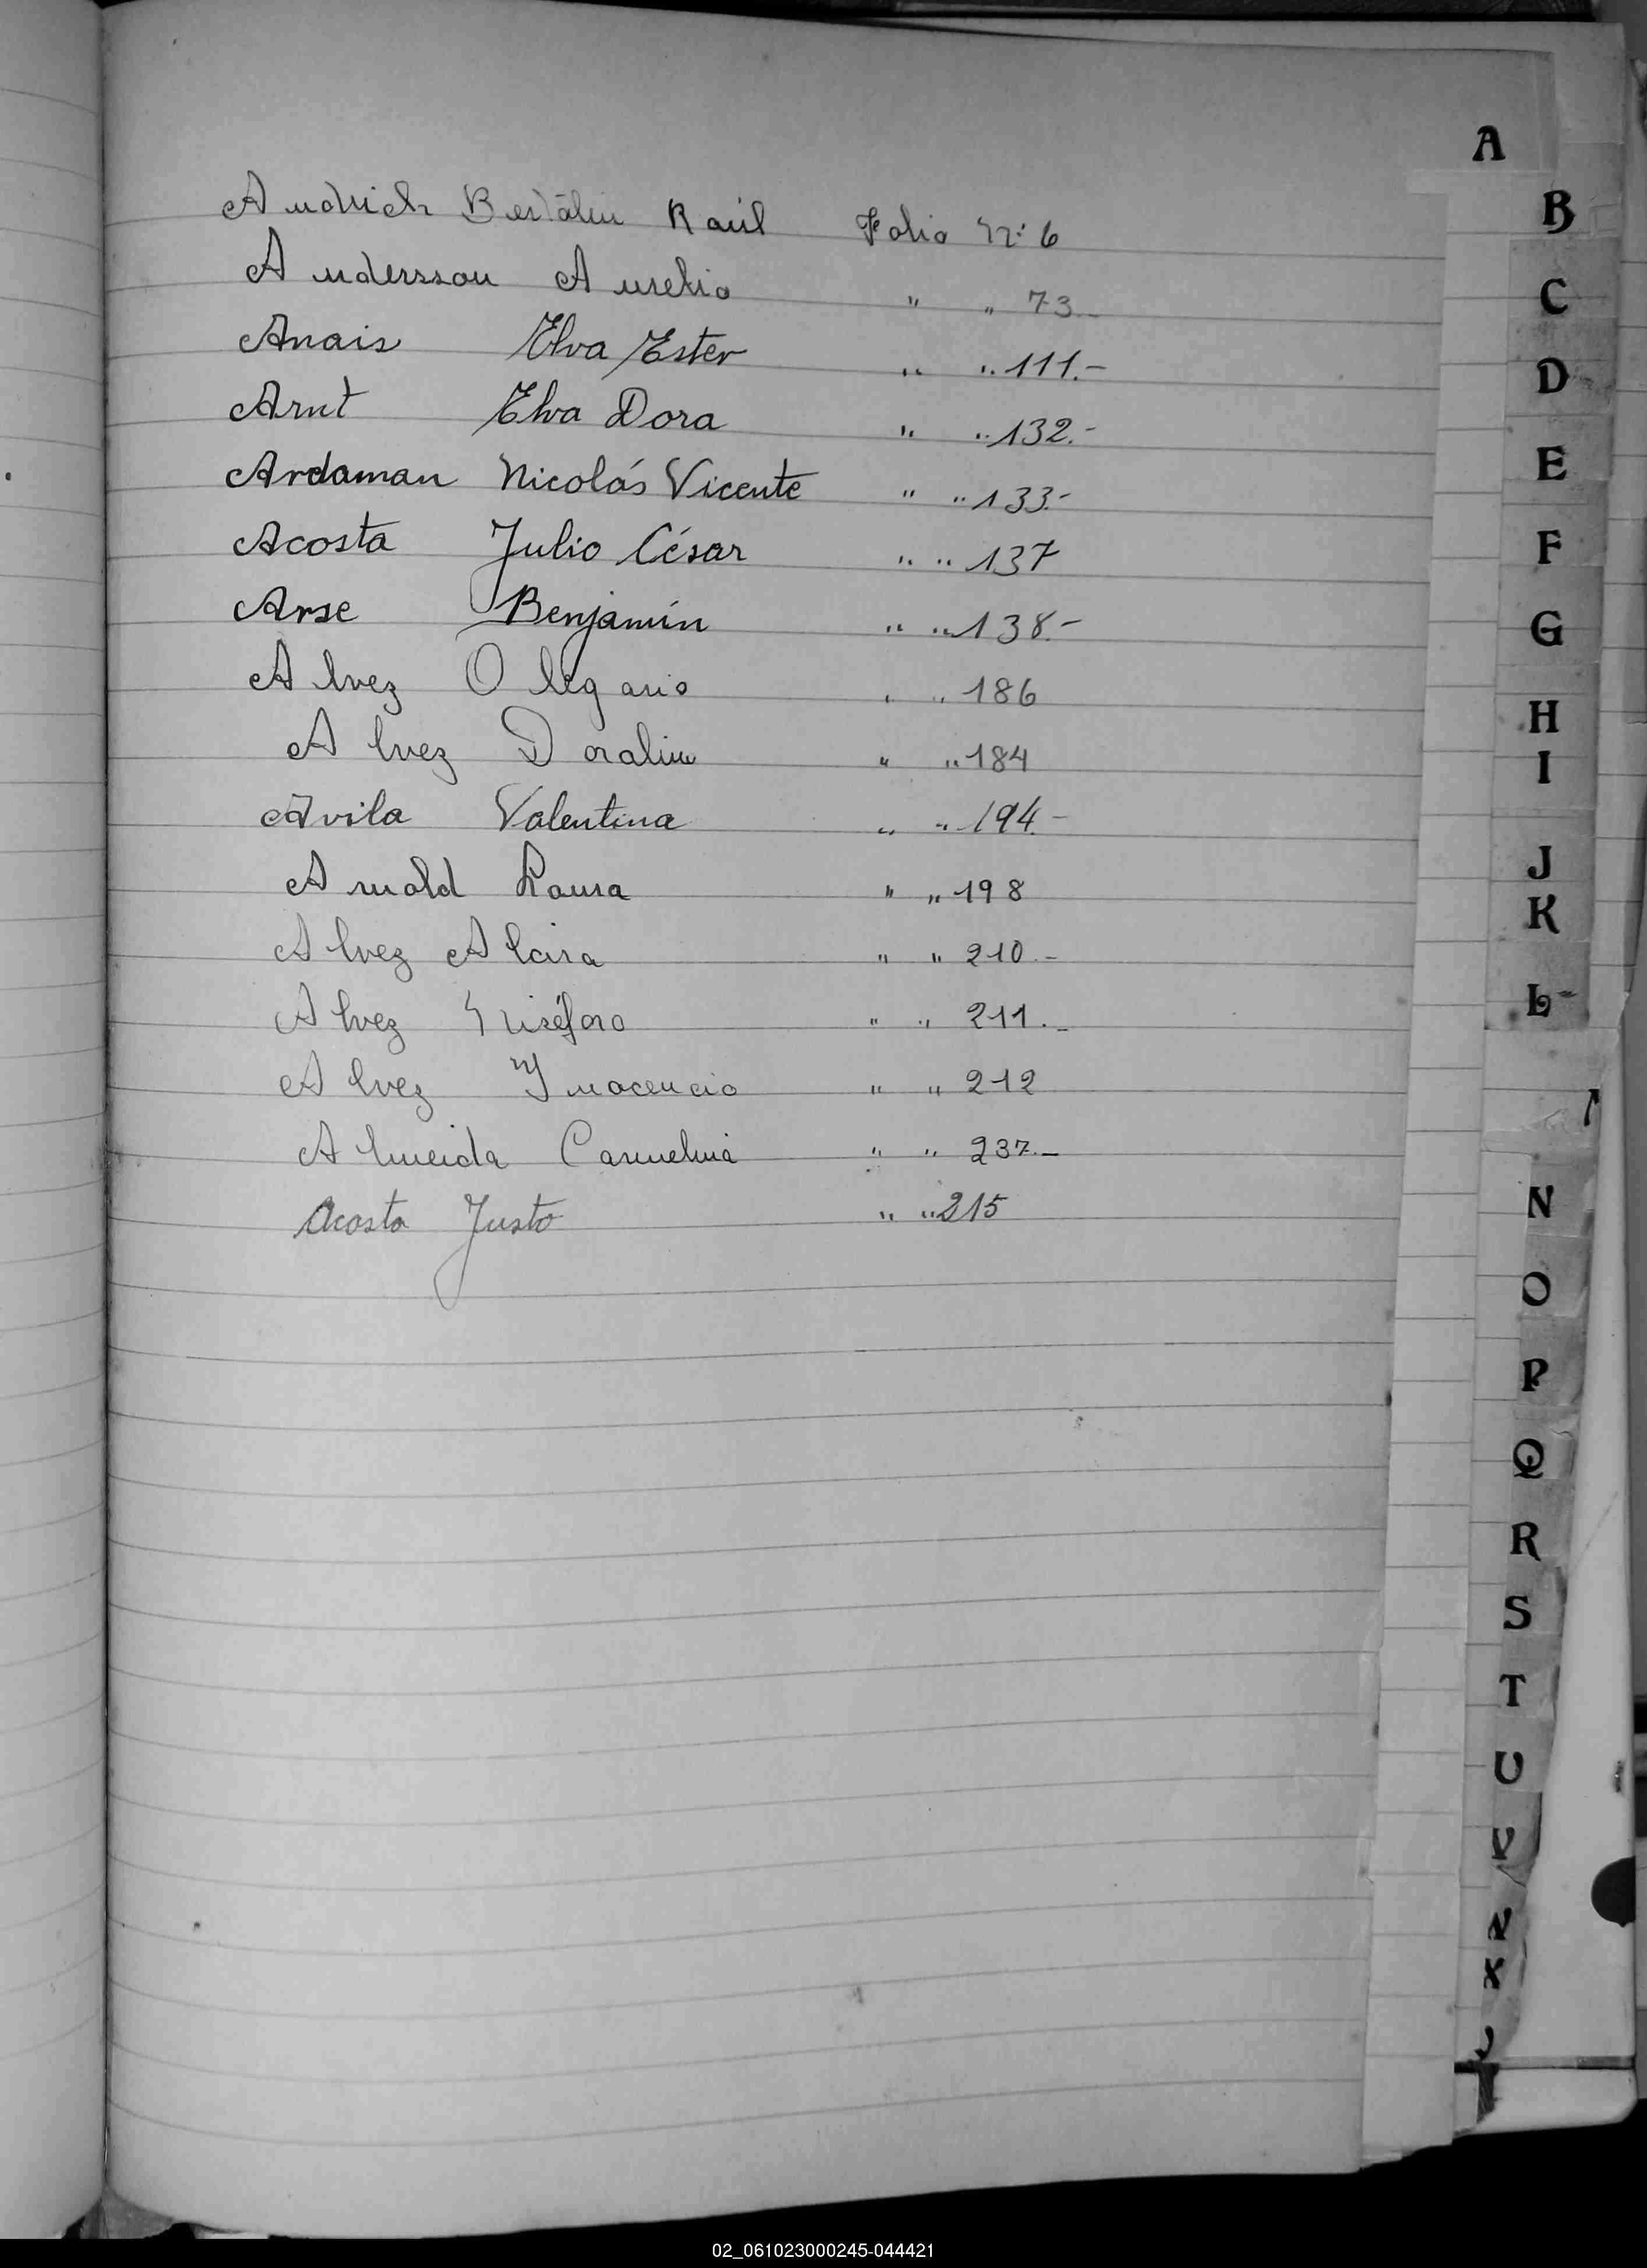 A
Andrich Bertălin Raúl Folio Nº 6
Anderssou Aurelio " " 73.-
Anais Elva Ester " " 111.-
Arnt Elva Dora " " 132.-
Ardaman Nicolás Vicente " " 133.-
Acosta Julio César " " 137
Arse Benjamín " " 138.-
Alvez Olegario " " 186
Alvez Doralino " " 184
Avila Valentina " " 194.-
Arnold Laura " " 198
Alvez Alcira " " 210.-
Alvez Niséforo " " 211.-
Alvez Inocencio " " 212
Almeida Carmelina " " 237.-
Acosta Justo " " 215
B
C
D
E
F
G
H
I
J
K
L
N
O
P
Q
R
S
T
U
V
X
02_061023000245-044421